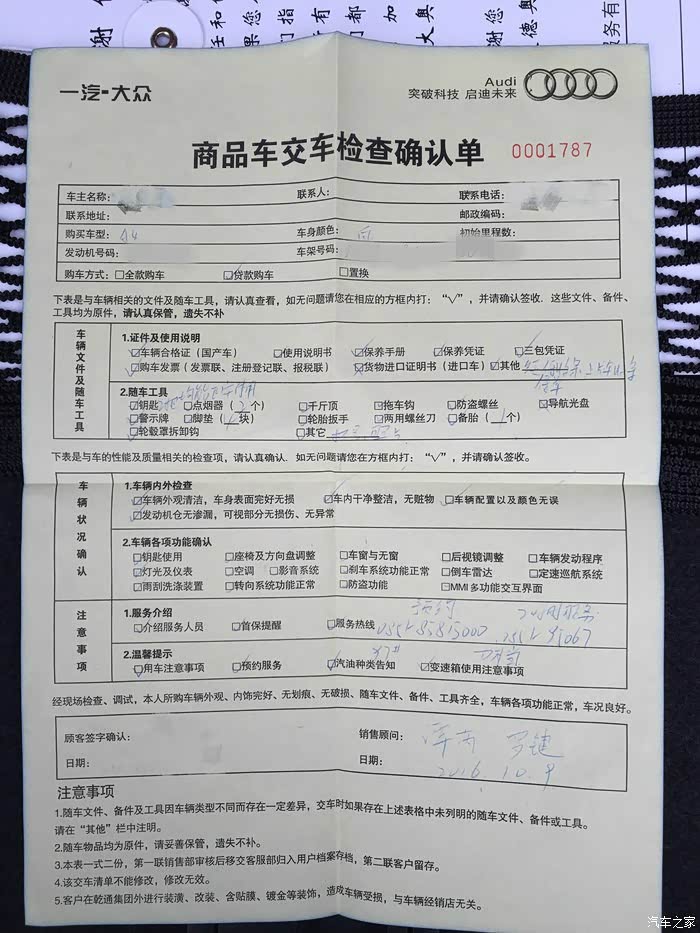 一汽-大众
Audi
突破科技 启迪未来
商品车交车检查确认单 0001787
车主名称: 联系人: 联系电话:
联系地址: 邮政编码:
购买车型: A4 车身颜色: 白 初始里程数:
发动机号码: 车架号码:
购车方式: □全款购车 □贷款购车 □置换
下表是与车辆相关的文件及随车工具，请认真查看，如无问题请您在相应的方框内打：“√”，并请确认签收. 这些文件、备件、
工具均为原件，请认真保管，遗失不补
车辆文件及随车工具
1.证件及使用说明
□车辆合格证（国产车） □使用说明书 □保养手册 □保养凭证 □三包凭证
□购车发票（发票联、注册登记联、报税联） □货物进口证明书（进口车） □其他
2.随车工具
□钥匙 □点烟器（2个） □千斤顶 □拖车钩 □防盗螺丝 □导航光盘
□警示牌 □脚垫（4块） □轮胎扳手 □两用螺丝刀 □备胎（1个）
□轮毂罩拆卸钩 □其它
下表是与车的性能及质量相关的检查项，请认真确认. 如无问题请您在方框内打：“√”，并请确认签收。
车辆状况确认
1.车辆内外检查
□车辆外观清洁，车身表面完好无损 □车内干净整洁，无赃物 □车辆配置以及颜色无误
□发动机仓无渗漏，可视部分无损伤、无异常
2.车辆各项功能确认
□钥匙使用 □座椅及方向盘调整 □车窗与无窗 □后视镜调整 □车辆发动程序
□灯光及仪表 □空调 □影音系统 □刹车系统功能正常 □倒车雷达 □定速巡航系统
□雨刮洗涤装置 □转向系统功能正常 □防盗功能 □MMI多功能交互界面
注意事项
1.服务介绍
预约 24小时服务
□介绍服务人员 □首保提醒 □服务热线
2.温馨提示
□用车注意事项 □预约服务 □汽油种类告知 □变速箱使用注意事项
经现场检查、调试，本人所购车辆外观、内饰完好、无划痕、无破损、随车文件、备件、工具齐全，车辆各项功能正常，车况良好。
顾客签字确认: 销售顾问:
日期: 日期: 2016.10.9
注意事项
1.随车文件、备件及工具因车辆类型不同而存在一定差异，交车时如果存在上述表格中未列明的随车文件、备件或工具。
请在“其他”栏中注明。
2.随车物品均为原件，请妥善保管，遗失不补。
3.本表一式二份，第一联销售部审核后移交客服部归入用户档案存档，第二联客户留存。
4.该交车清单不能修改，修改无效。
5.客户在乾通集团外进行装潢、改装、含贴膜、镀金等装饰，造成车辆受损，与车辆经销店无关。
汽车之家